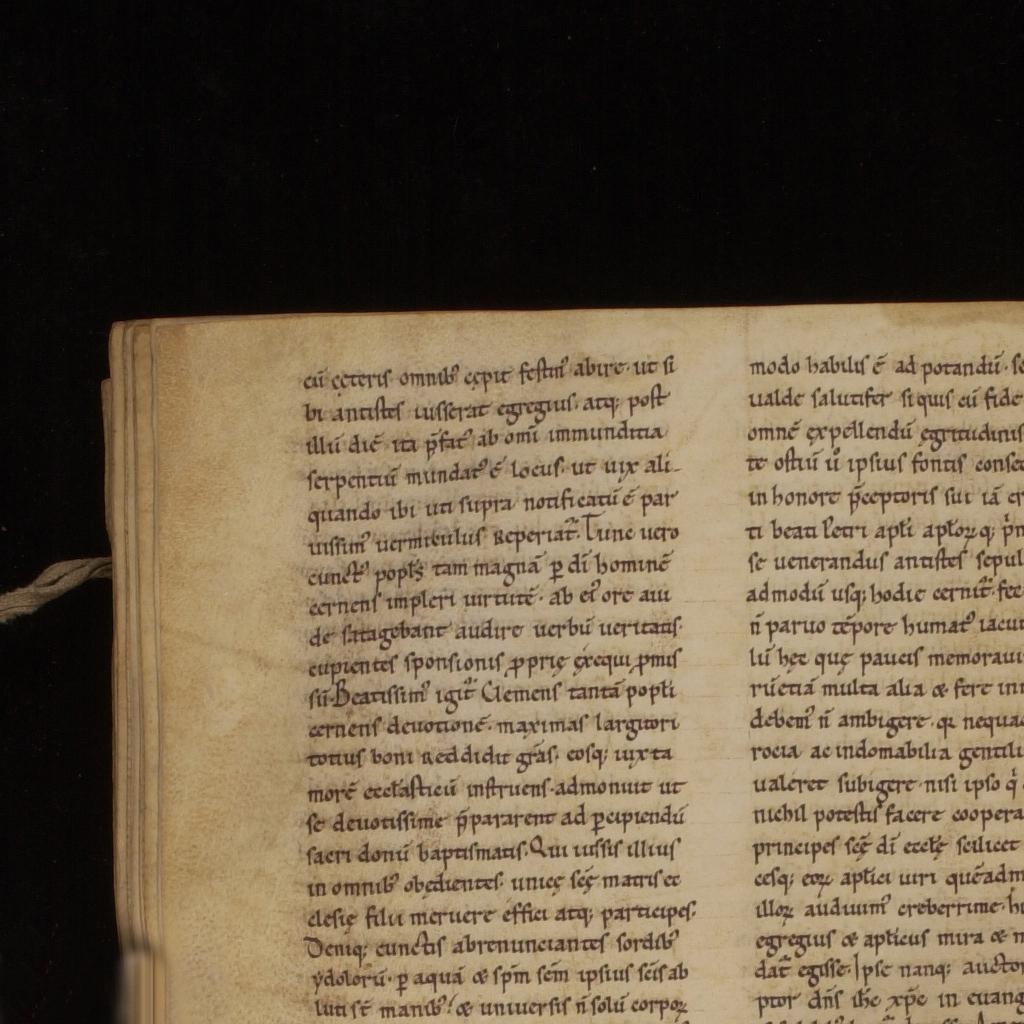 cū ęcteris omnibꝰ cępit festinꝰ abire· ut si
bi antistes iusserat egregius· atq; post
illū diē ita p̄fatꝰ ab omī immunditia
serpentiū mundatꝰ ē locus· ut uix ali-
quando ibi uti supra notificatū ē par
uissimꝰ uermibulus reperiat᷑· Tunc uero
cunctꝰ popl̄s tam magnā ꝑ dī hominē
cernens impleri uirtutē· ab eiꝰ ore aui
de satagebant audire uerbū ueritatis·
cupientes sponsionis ꝓprię ęxequi ꝓmis
sū· Beatissimꝰ igit᷑ Clemens tantā popl̄i
cernens deuotionē· maximas largitori
totius boni reddidit grās· eosq; iuxta
morē eccl̄asticū instruens· admonuit ut
se deuotissime p̄pararent ad ꝑcipiendū
sacri donū baptismatis· Qui iussis illius
in omnibꝰ obędientes· unicę scę matris ec
clesię filii meruere effici atq; participes·
Deniq; cunctis abrenunciantes sordibꝰ
ydolorū· ꝑ aquā & sp̄m scm̄ ipsius scīs ab
luti st̄ manibꝰ· & uniuersis n̄ solū corporꝝ
modo habilis ē ad potandū· se
ualde salutifer si quis eū fide
omnē ęxpellendū ęgritudinis
te ostiū u̓ ipsius fontis consec
in honore p̄ceptoris sui iā er
ti beati Petri apl̄i apl̄oꝝq; p̄n
se uenerandus antistes sepul
admodū usq; hodie cernit᷑· fec
n̄ paruo tēpore humatꝰ iacui
lū hęc quę paucis memoraui
rūetiā multa alia & fere inn
debemꝰ n̄ ambigere· qꝛ nequac
rocia ac indomabilia gentili
ualeret subigere· nisi ipso q̇
nichil potestis facere coopera
principes scę dī eccl̄ę scilicet
cesq; eoꝝ apl̄ici uiri quēadm
illoꝝ audiuimꝰ creberrime· hi
egregius & apl̄icus mira & n
dat᷑ egisse· Ipse nanq; auctor
ptor dn̄s ih̄c xp̄c in euang